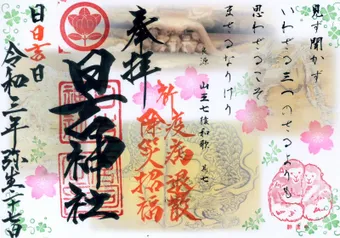 見ず聞かず
いわざる三つのさるよりも
思わざるこそ
まさるなりけり
山王七猿和歌 其七
奉拝
祈疫病退散
除災招福
日吉神社
令和二年弥生二十七日